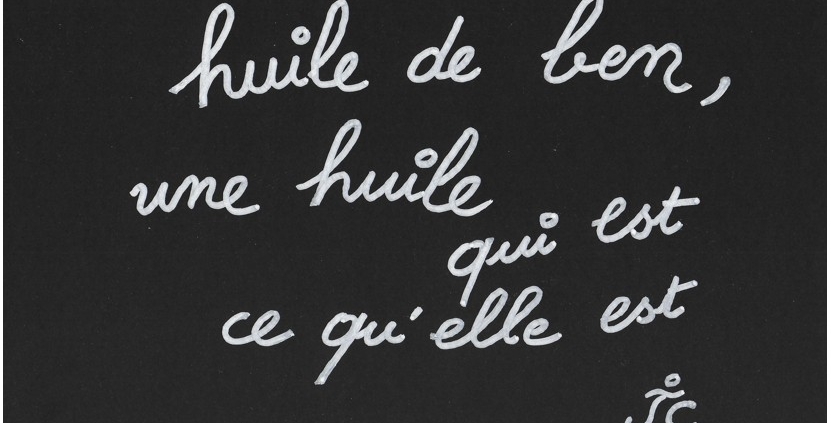 huile de ben,
une huile
qui est
ce qu'elle est